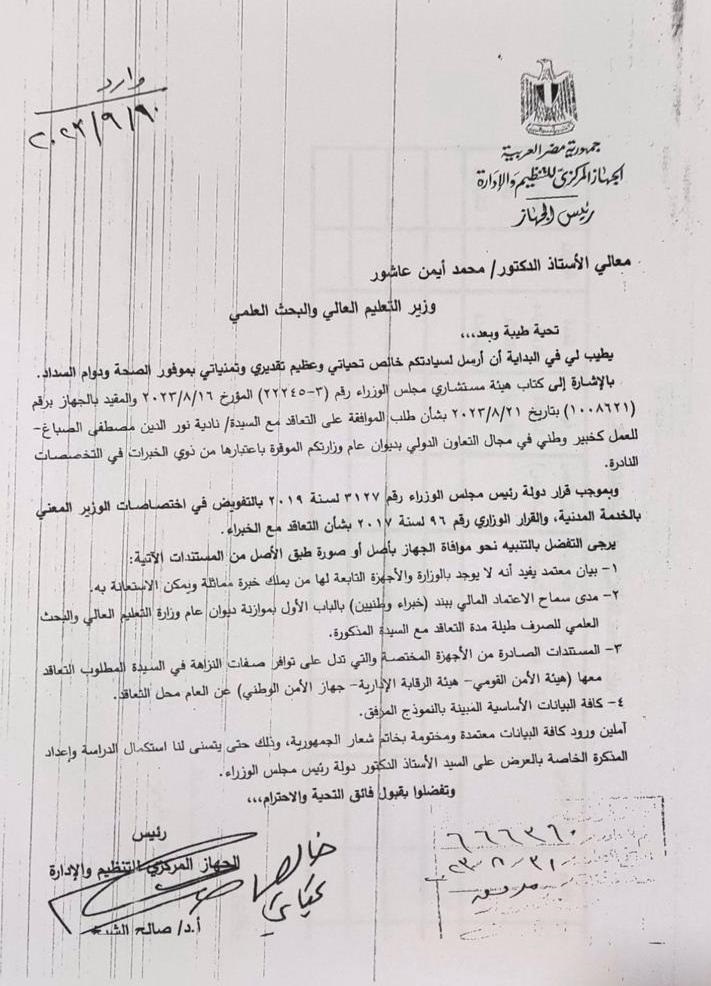 وارد
٢٠٢٣/٩/٩٠
جمهورية مصر العربية
الجهاز المركزي للتنظيم والإدارة
رئيس الجهاز
معالي الأستاذ الدكتور/ محمد أيمن عاشور
وزير التعليم العالي والبحث العلمي
تحية طيبة وبعد،،،
يطيب لي في البداية أن أرسل لسيادتكم خالص تحياتي وعظيم تقديري وتمنياتي بموفور الصحة ودوام السداد.
بالإشارة إلى كتاب هيئة مستشاري مجلس الوزراء رقم (٣-٢٢٢٤٥) المؤرخ ٢٠٢٣/٨/١٦ والمقيد بالجهاز برقم
(١٠٠٨٦٢١) بتاريخ ٢٠٢٣/٨/٢١ بشأن طلب الموافقة على التعاقد مع السيدة/ نادية نور الدين مصطفى الصباغ-
للعمل كخبير وطني في مجال التعاون الدولي بديوان عام وزارتكم الموقرة باعتبارها من ذوي الخبرات في التخصصات
النادرة.
وبموجب قرار دولة رئيس مجلس الوزراء رقم ٣١٢٧ لسنة ٢٠١٩ بالتفويض في اختصاصات الوزير المعني
بالخدمة المدنية، والقرار الوزاري رقم ٩٦ لسنة ٢٠١٧ بشأن التعاقد مع الخبراء.
يرجى التفضل بالتنبيه نحو موافاة الجهاز بأصل أو صورة طبق الأصل من المستندات الآتية:
١- بيان معتمد يفيد أنه لا يوجد بالوزارة والأجهزة التابعة لها من يملك خبرة مماثلة ويمكن الاستعانة به.
٢- مدى سماح الاعتماد المالي ببند (خبراء وطنيين) بالباب الأول بموازنة ديوان عام وزارة التعليم العالي والبحث
العلمي للصرف طيلة مدة التعاقد مع السيدة المذكورة.
٣- المستندات الصادرة من الأجهزة المختصة والتي تدل على توافر صفات النزاهة في السيدة المطلوب التعاقد
معها (هيئة الأمن القومي- هيئة الرقابة الإدارية- جهاز الأمن الوطني) عن العام محل التعاقد.
٤- كافة البيانات الأساسية المبينة بالنموذج المرفق.
آملين ورود كافة البيانات معتمدة ومختومة بخاتم شعار الجمهورية، وذلك حتى يتسنى لنا استكمال الدراسة وإعداد
المذكرة الخاصة بالعرض على السيد الأستاذ الدكتور دولة رئيس مجلس الوزراء.
وتفضلوا بقبول فائق التحية والاحترام،،،
رئيس
الجهاز المركزي للتنظيم والإدارة
خالص
تحياتي
أ.د/ صالح الشيخ
٦٦٦٣٦٠
٢٣-٨-٣١
مرفق